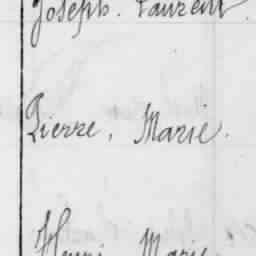 Joseph. Laurent.
Pierre, Marie.
Henri Marie